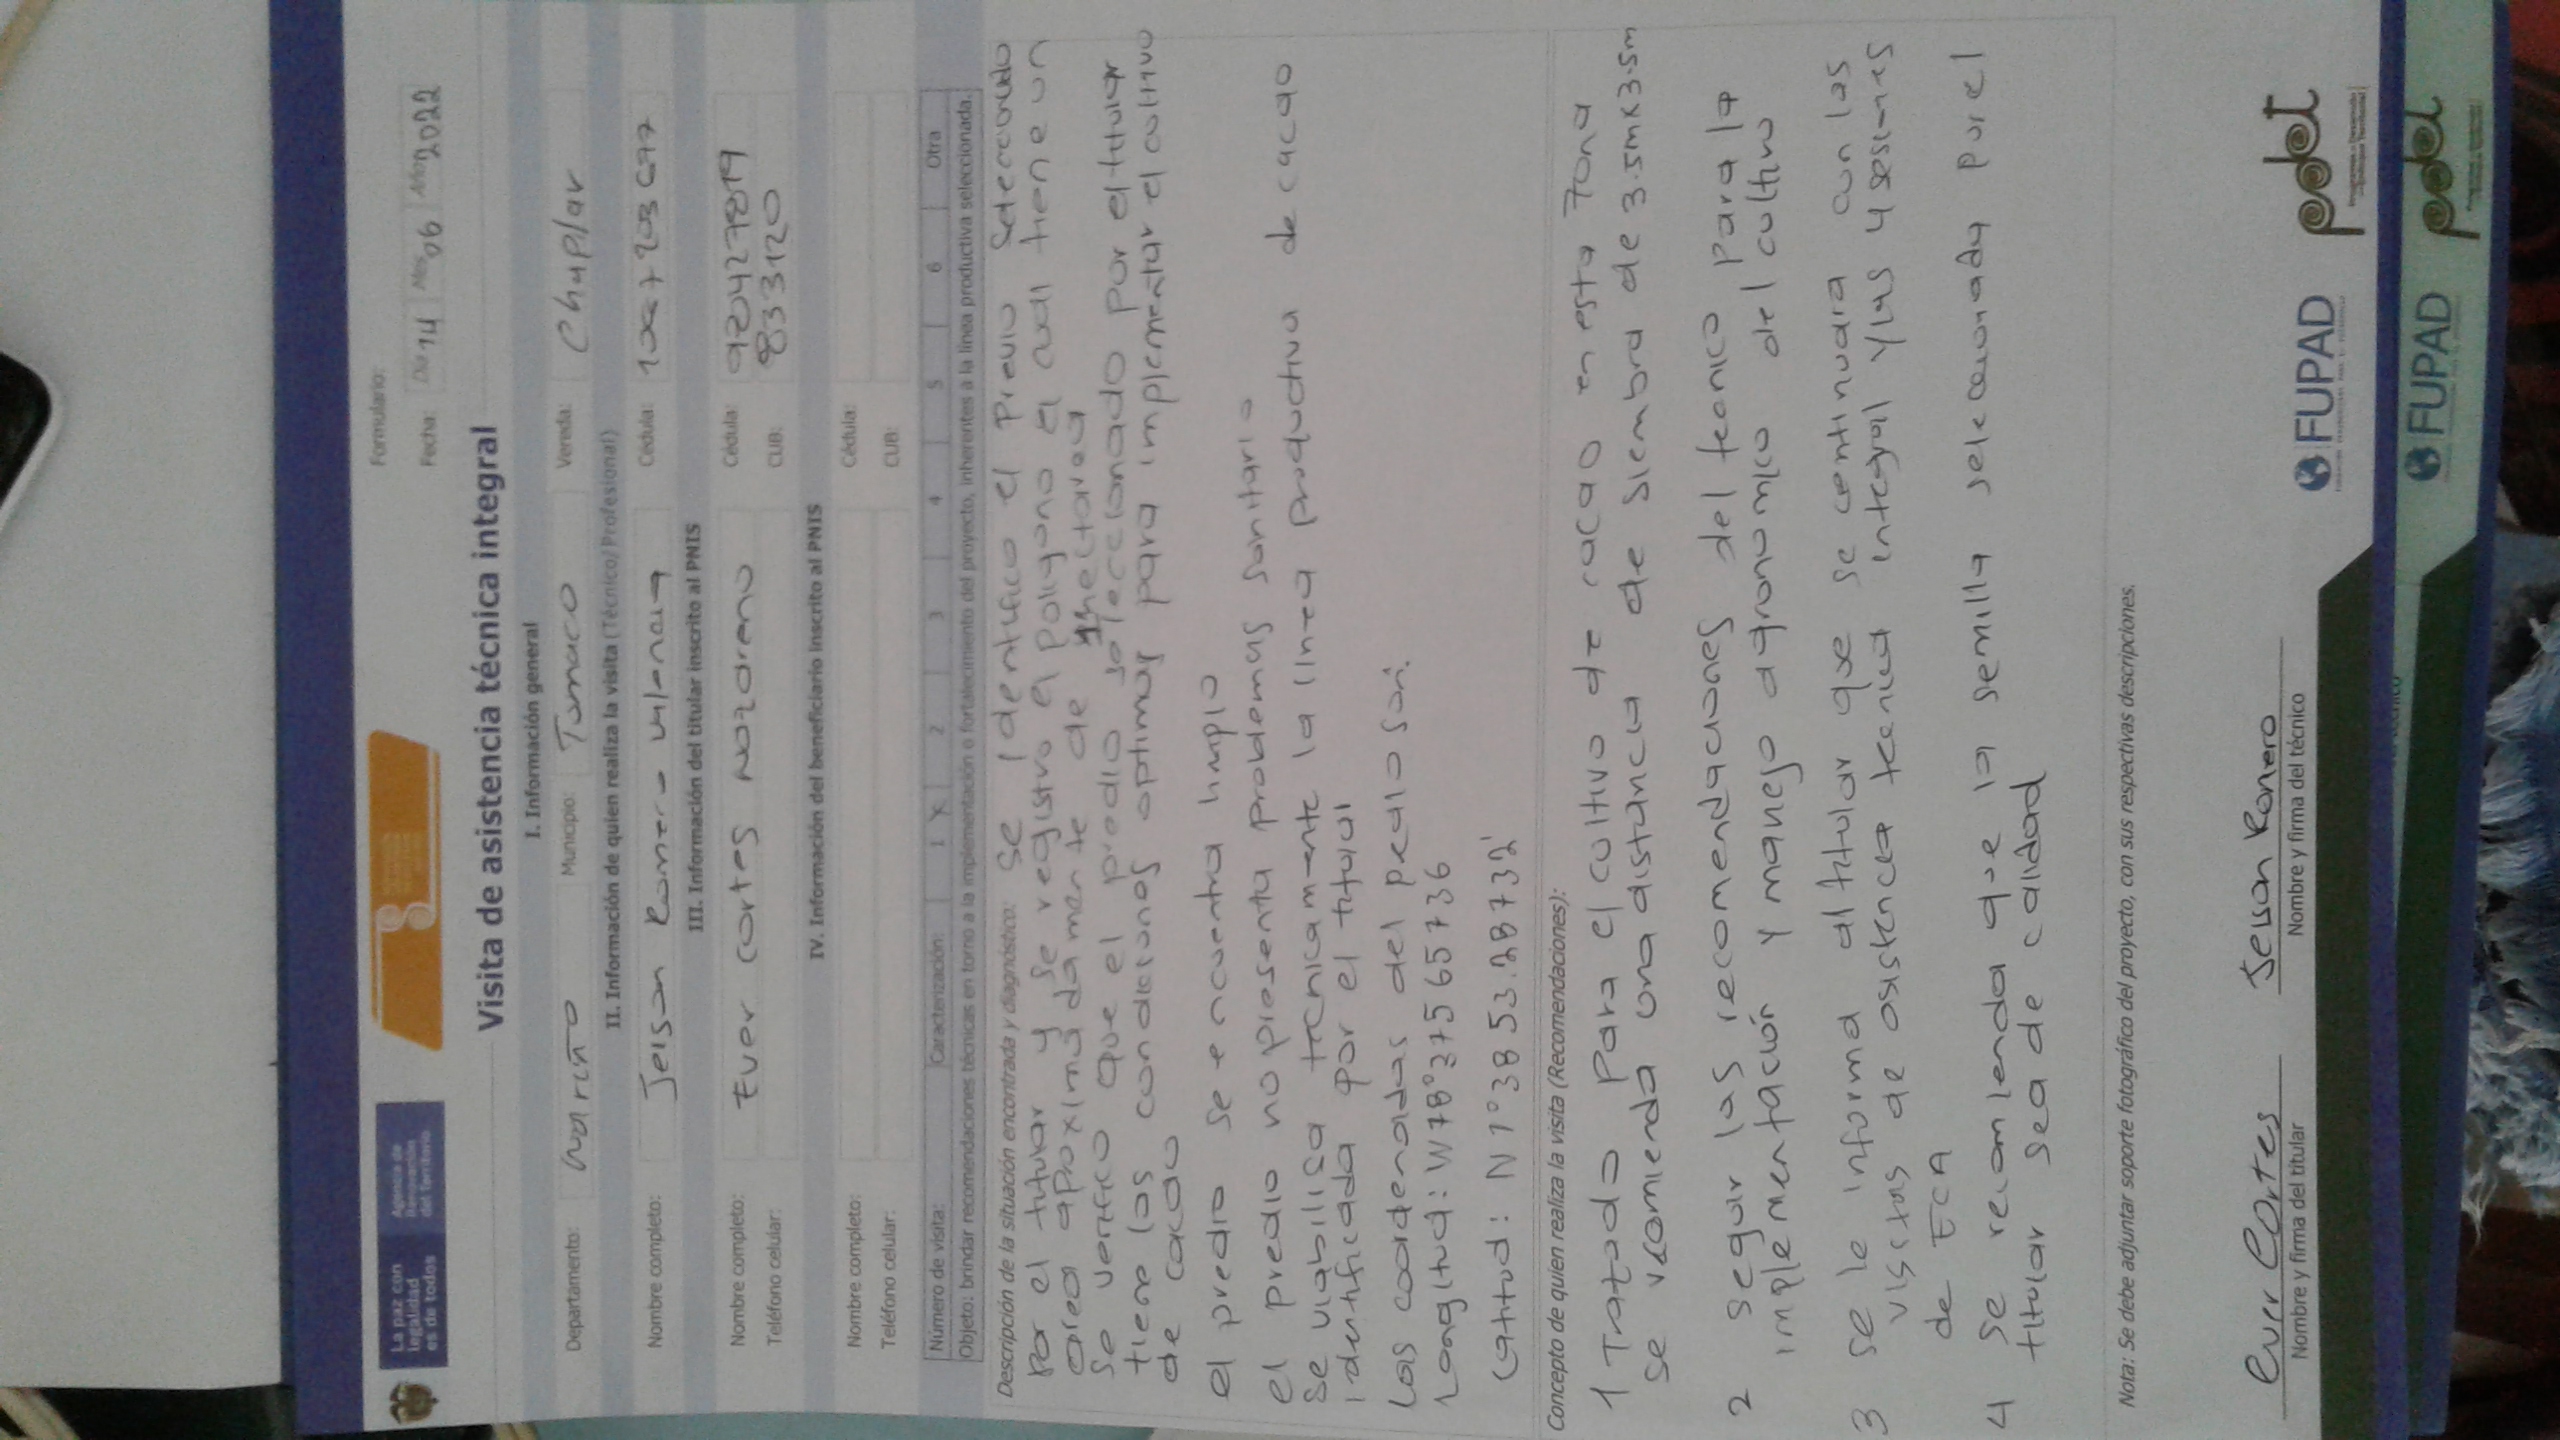 La paz con
legalidad
es de todos
Agencia de
Renovación
del Territorio
Formulario:
Fecha: Día 14 Mes 06 Año 2022
Visita de asistencia técnica integral
I. Información general
Departamento: Nariño Municipio: Tumaco Vereda: Chupilar
II. Información de quien realiza la visita (Técnico/Profesional)
Nombre completo: Jeison Romero valencia Cédula:
III. Información del titular inscrito al PNIS
Nombre completo: Ever cortes Nazareno Cédula:
Teléfono celular: CUB: 833120
IV. Información del beneficiario inscrito al PNIS
Nombre completo: Cédula:
Teléfono celular: CUB:
Número de visita: Caracterización: 1 X 2 3 4 5 6 Otra
Objeto: brindar recomendaciones técnicas en torno a la implementación o fortalecimiento del proyecto, inherentes a la línea productiva seleccionada.
Descripción de la situación encontrada y diagnóstico: se identifico el previo
por el titular y se registro el poligono el cual tiene un
area aproximadamente de hectarea
se verifico que el predio seleccionado por el titular
tiene las condiciones optimas para implementar el cultivo
de cacao
el predio se encuentra limpio
el predio no presenta problemas sanitario
se viabilisa tecnicamente la linea productiva de cacao
identificada por el titular
las coordenadas del pedio son:
Longitud: W78°37565736
Latitud: N1°3853.28732'
Concepto de quien realiza la visita (Recomendaciones):
1 Tratado para el cultivo de cacao en esta zona
se recomienda una distancia de siembra de 3.5mx3.5m
2 seguir las recomendaciones del tecnico para la
implementación y manejo agronomico del cultivo
3 se le informa al titular que se continuara con las
visitas de asistencia tecnica integral y las 4 sesiones
de ECA
4 se recomienda que la semilla seleccionada por el
titular sea de calidad
Nota: Se debe adjuntar soporte fotográfico del proyecto, con sus respectivas descripciones.
Ever Cortes
Nombre y firma del titular
Jeison Romero
Nombre y firma del técnico
FUPAD
pdet
FUPAD
pdet